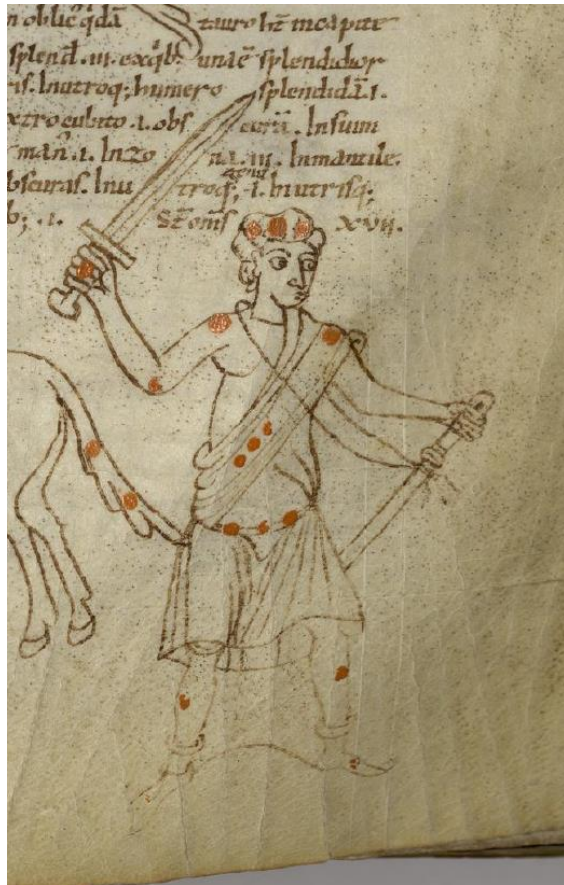 obliẽ q̃dã tauro hẽ in capite
splend̃. .iii. ex q̃b; una ẽ splendidior
In utroq; humero splendidã .i.
cubito .i. obs curã. In sum
man̄ .i. In zo na .iii. In manuale.
obscuras. In u troq; genu .i. In utrisq;
.i. S̃t om̃s xvii.